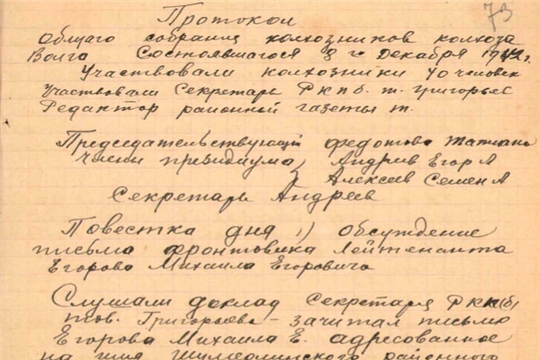 73
Протокол
общего собрания колхозников колхоза
Волга Состоявшагося 8 го Декабря 1942 г.
Участвовали колхозники 40 человек
Участвовали Секретарь РКпб. т. Григорьев
Редактор районный газеты т.
Председательствующий Федотова Татьяна
члены президиума, Андреев Егор А
Алексеев Семен А
Секретарь Андреев
Повестка дня 1) обсуждение
письма фронтовика Лейтенанта
Егорова Михаила Егоровича
Слушали доклад Секретаря РКп(б)
тов. Григорьева - зачитал письмо
Егорова Михаила Е. адресованное
на имя районного